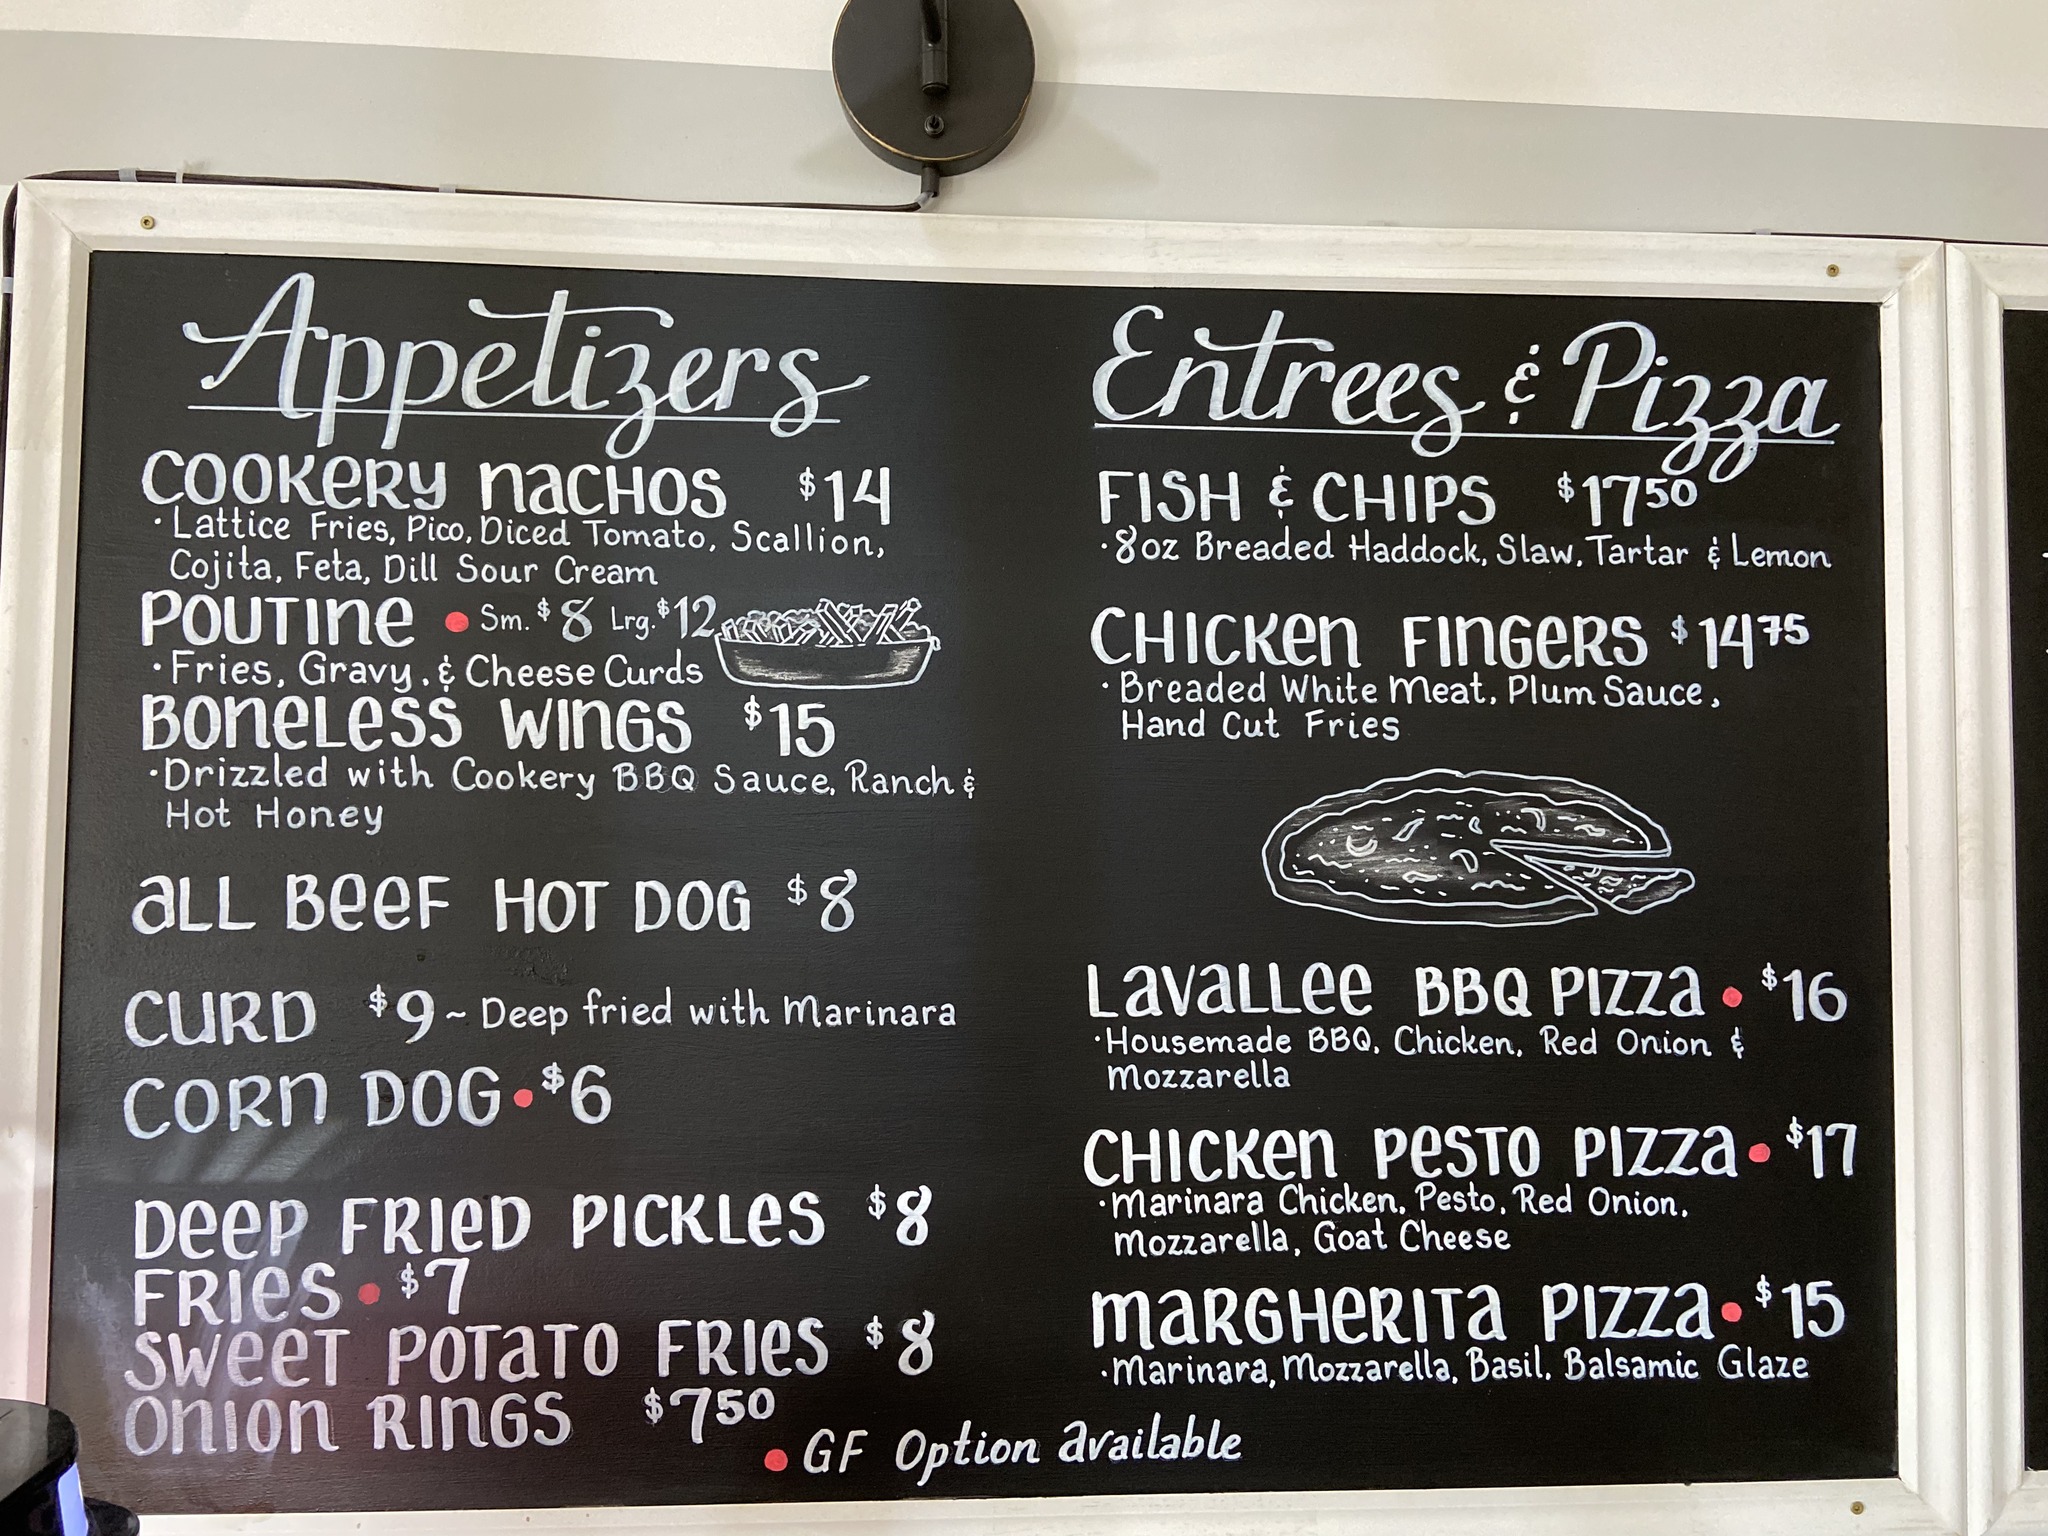 Appetizers
COOKERY NACHOS $14
· Lattice Fries, Pico, Diced Tomato, Scallion,
Cojita, Feta, Dill Sour Cream
POUTINE • Sm. $8 Lrg. $12
· Fries, Gravy, & Cheese Curds
BONELESS WINGS $15
· Drizzled with Cookery BBQ Sauce, Ranch &
Hot Honey
ALL BEEF HOT DOG $8
CURD $9 ~ Deep fried with Marinara
CORN DOG • $6
DEEP FRIED PICKLES $8
FRIES • $7
SWEET POTATO FRIES $8
ONION RINGS $7 50
Entrees & Pizza
FISH & CHIPS $17 50
· 8oz Breaded Haddock, Slaw, Tartar & Lemon
CHICKEN FINGERS $14 75
· Breaded White Meat, Plum Sauce,
Hand Cut Fries
LAVALLEE BBQ PIZZA • $16
· Housemade BBQ, Chicken, Red Onion &
Mozzarella
CHICKEN PESTO PIZZA • $17
· Marinara Chicken, Pesto, Red Onion,
Mozzarella, Goat Cheese
MARGHERITA PIZZA • $15
· Marinara, Mozzarella, Basil, Balsamic Glaze
• GF Option available